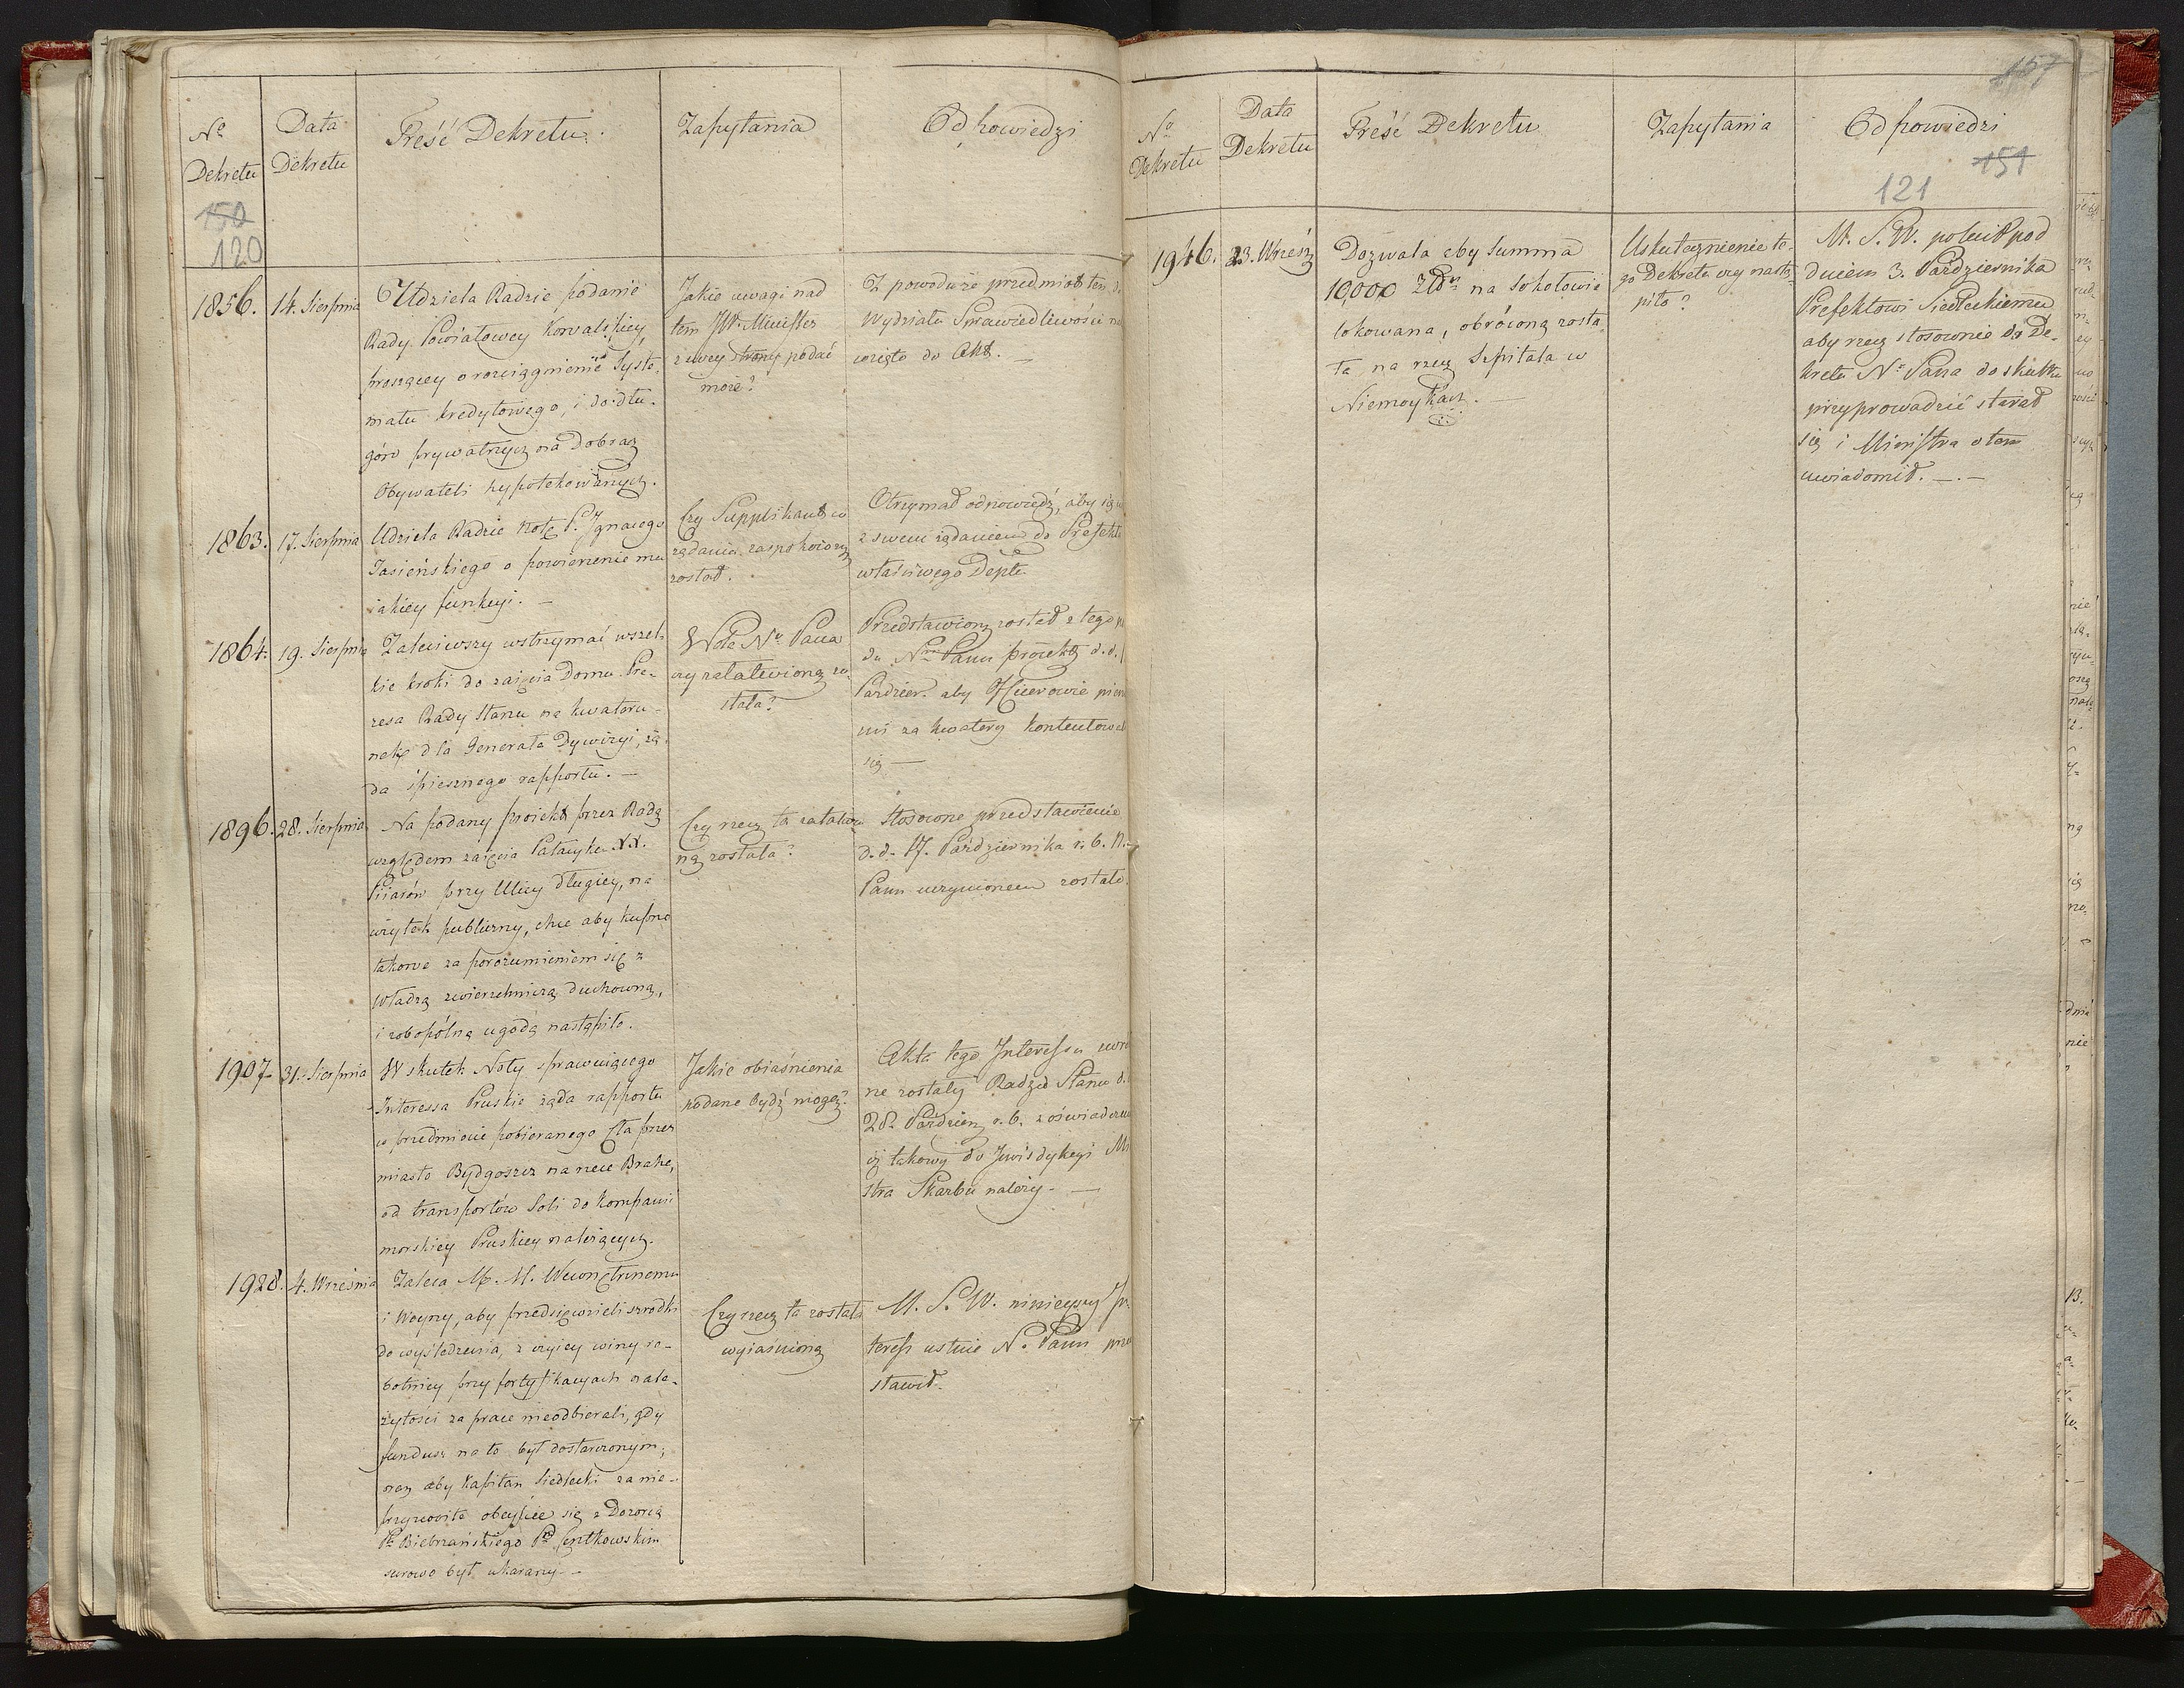 No
Dekretu
Data
Dekretu
Treść Dekretu
Zapytania
Odpowiedzi
150
120
1856.
14. Sierpnia
Udziela Radzie podanie
Rady Powiatowey
proszącey o rozciągnienie Syste-
matu kredytowego, i do dłu-
gów prywatnych na Dobrach
Obywateli hypotekowanych.
Jakie uwagi nad
tem JW. Minister
z swey strony podać
może?
Z powodu że przedmiot ten do
Wydziału Sprawiedliwości na
wzięto do Akt. —
1863.
17. Sierpnia
Udziela Radzie notę P. Ignacego
Jasieńskiego o powierzenie mu
iakiey funkcyi. —
Czy Supplikant w
żądaniu zaspokoiony
został.
Otrzymał odpowiedź, aby się
z swem żądaniem do Prefekta
właściwego Deptu
1864.
19. Sierpnia
Zaleciwszy wstrzymać wszel-
kie kroki do zaięcia Domu Pre-
zesa Rady Stanu na kwateru-
nek dla Generała Dywizyi, żą-
da spiesznego rapportu. —
Wola No Pana
czy załatwioną zo-
stała?
Przedstawiony został z tego
du Nmu Panu proiekt d. d.
Paździer. aby Officerowie
mi za kwatery kontentowali
się —
1896.
28. Sierpnia
Na podany proiekt przez Radę
względem zaięcia Pałacyku XX.
Piiarów przy Ulicy długiey, na
użytek publiczny, chce aby kupno
takowe za porozumieniem się z
władzą zwierzchniczą duchowną,
i zobopólną ugodą nastąpiło.
Czy rzecz ta załatwio-
ną została?
Stosowne przedstawienie
d. d. 17. Października r. b. N.
Panu uczynionem zostało.
1907
31. Sierpnia
W skutek Noty sprawuiącego
Interessa Pruskie żąda rapportu
w przedmiocie pobieranego Cła przez
miasto Bydgoszcz na rzece Brahe,
od transportów Soli do Kompanii
morskiey Pruskiey należących.
Jakie obiaśnienia
podane bydź mogą?
Akta tego Interessu
ne zostały Radzie Stanu d.
28. Paździer. r. b. z oświadczeniem
iż takowy do Jurisdykcyi Mi
stra Skarbu należy. —
1928.
4. Września
Zaleca M. M. Wewnętrznemu
i Woyny, aby przedsięwzięli srodki
do wyśledzenia, z czyiey winy ro-
botnicy przy fortyfikacyach nale-
żytości za prace nieodbierali, gdy
fundusz na to był dostarczonym,
oraz aby Kapitan Siedlecki za nie-
przyzwoite obeyście się z Dozorcą
Pa Biebrzańskiego Pm Czntkowskim
surowo był ukarany —
Czy rzecz ta została
wyiaśnioną
M. S. W. ninieyszy In-
teress ustnie N. Panu
stawił.
No
Dekretu
Data
Dekretu
Treść Dekretu
Zapytania
Odpowiedzi
157
151
121
1946.
23. Wrześ.
Dozwala aby Summa
10,000 Złp. na Sokołowie
lokowana, obróconą zosta-
ła, na rzecz Szpitala w
Niemoykach. —
Uskutecznienie te-
go Dekretu czy nastą-
piło?
M. S. W. polecił pod
dniem 3. Października
Prefektowi Siedleckiemu
aby rzecz stosownie do De-
kretu No Pana do skutku
przyprowadzić starał
się i Ministra o tem
uwiadomił. —.—